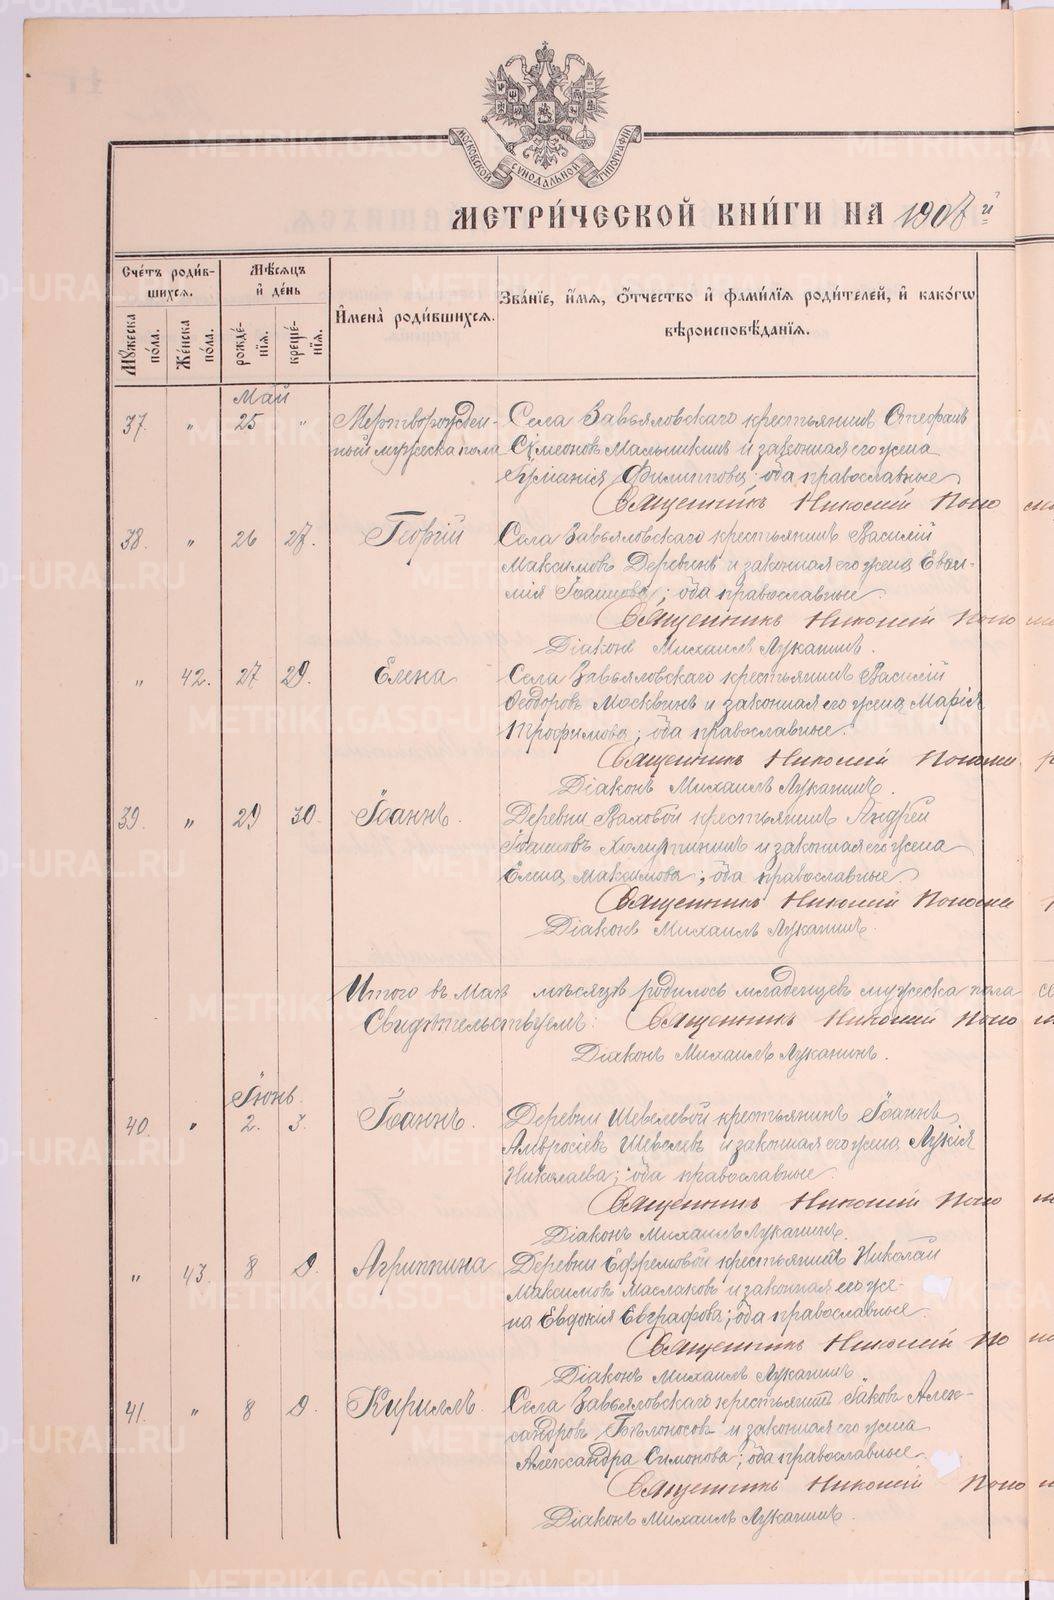 МОСКОВСКОЙ СѴНОДАЛЬНОЙ ТИПОГРАФІИ
МЕТРИ́ЧЕСКОЙ КНИ́ГИ НА 1907 й
Сче́тъ роди́в-
шихсѧ.
Мꙋжеска по́ла.
Же́нска по́ла.
Мѣ́сѧцъ
и҆ де́нь
рожде́-нїѧ.
креще́-нїѧ.
И҆мена̀ роди́вшихсѧ.
Зва́нїе, и҆́мѧ, ѻ҆́тчество и҆ фами́лїѧ роди́телей, и҆ како́гѡ
вѣроисповѣ́данїѧ.
Май
37. " 25 " Мертворожден- Села Завьяловскаго крестьянинъ Стефанъ
ный мужеска пола Сѵмеоновъ Малышкинъ и законная его жена
Филиппова; оба православные
Священникъ Николай Поно
38. " 26 27. Георгій Села Завьяловскаго крестьянинъ Василій
Максимовъ Деревинъ и законная его жена Евѳи-
мія Іоаннова; оба православные.
Священникъ Николай Поно
Діаконъ Михаилъ Луканинъ.
" 42. 27 29. Елена Села Завьяловскаго крестьянинъ Василій
Ѳеодоровъ Москвинъ и законная его жена Марія
Трофимова; оба православные.
Священникъ Николай Поном
Діаконъ Михаилъ Луканинъ.
39. " 29 30. Іоаннъ. Деревни Ваховой крестьянинъ Андрей
Іоанновъ Халутининъ и законная его жена
Елена Максимова; оба православные
Священникъ Николай Поном
Діаконъ Михаилъ Луканинъ.
Итого въ Маѣ мѣсяцѣ родилось младенцевъ мужеска пола
Свидѣтельствуемъ: Священникъ Николай Поно
Діаконъ Михаилъ Луканинъ.
Іюнь.
40. " 2. 3. Іоаннъ. Деревни Шевелевой крестьянинъ Іоаннъ
Амвросіевъ Шевелевъ и законная его жена Лукія
Николаева; оба православные.
Священникъ Николай Поно
Діаконъ Михаилъ Луканинъ.
" 43. 8 9. Агриппина Деревни Ефремовой крестьянинъ Николай
Максимовъ Маслаковъ и законная его же-
на Евдокія Евграфова; оба православные.
Священникъ Николай По
Діаконъ Михаилъ Луканинъ.
41. " 8 9. Кириллъ. Села Завьяловскаго крестьянинъ Іаковъ Алек-
сандровъ Бѣлоносовъ и законная его жена
Александра Симонова; оба православные.
Священникъ Николай Поно
Діаконъ Михаилъ Луканинъ.
METRIKI.GASO-URAL.RU